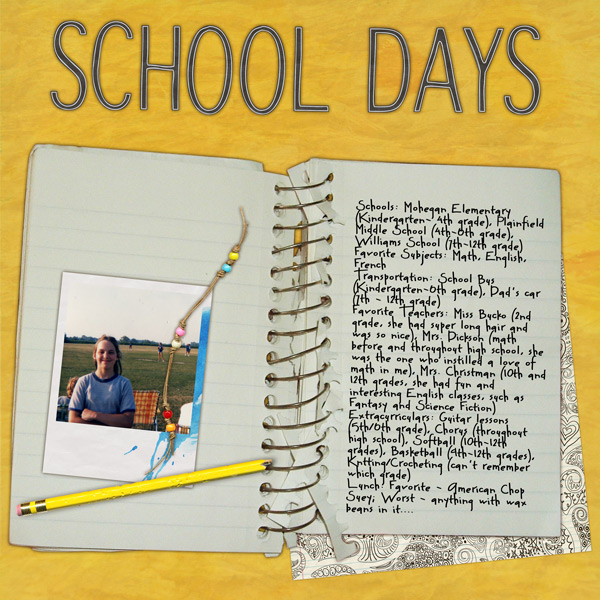 SCHOOL DAYS
Schools: Mohegan Elementary
(Kindergarten~ 4th grade), Plainfield
Middle School (4th~6th grade),
Williams School (7th~12th grade)
Favorite Subjects: Math, English,
French
Transportation: School Bus
(Kindergarten~6th grade), Dad's car
(7th ~ 12th grade)
Favorite Teachers: Miss Bucko (2nd
grade, she had super long hair and
was so nice), Mrs. Dickson (math
before and throughout high school, she
was the one who instilled a love of
math in me), Mrs. Christman (10th and
12th grades, she had fun and
interesting English classes, such as
Fantasy and Science Fiction)
Extracurriculars: Guitar lessons
(5th/6th grade), Chorus (throughout
high school), Softball (10th~12th
grades), Basketball (9th~12th grades),
Knitting/Crocheting (can't remember
which grade)
Lunch: Favorite ~ American Chop
Suey; Worst ~ anything with wax
beans in it....